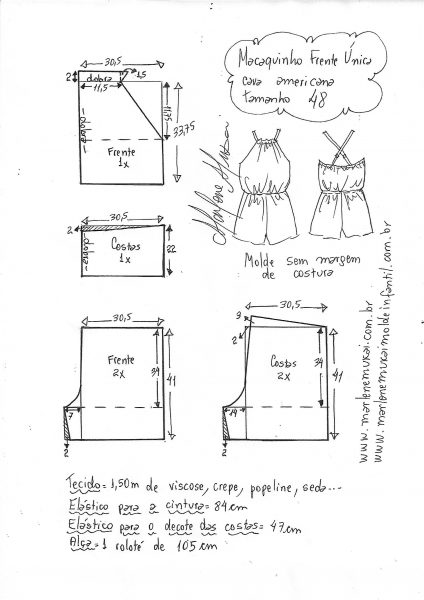 Macaquinho Frente Única
cava americana
tamanho 48
30,5
2
dobra
1,5
11,5
11,25
33,75
dobra
Frente
1x
30,5
2
dobra
Costas
1x
22
Marlene Mukai
Molde sem margem
de costura
30,5
Frente
2x
34
41
7
2
30,5
9
2
Costas
2x
34
41
14
2
www.marlenemukai.com.br
www.marlenemukaimoldeinfantil.com.br
Tecido= 1,50m de viscose, crepe, popeline, seda...
Elástico para a cintura= 84cm
Elástico para o decote das costas= 47cm
Alça= 1 roloté de 105cm